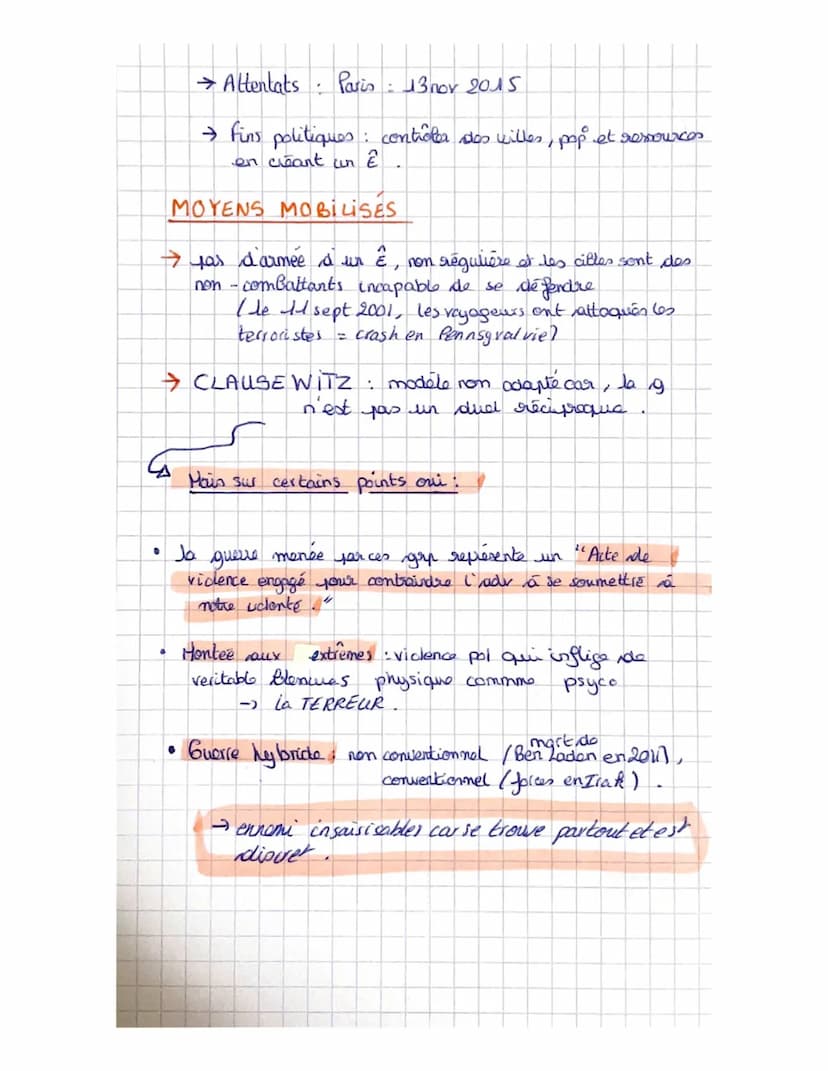 → Attentats : Paris : 13 nov 2015
→ fins politiques : contrôler des villes, pop° et ressources
en créant un Ê .
MOYENS MOBILISÉS
→ pas d'armée d'un Ê, non régulière et les cibles sont des
non-combattants incapable de se défendre
(le 11 sept 2001, les voyageurs ont attaqués les
terroristes = crash en Pennsyvalvie)
→ CLAUSEWITZ : modèle non adapté car, la g
n'est pas un duel réciproque .
Mais sur certains points oui :
• la guerre menée par ces grp représente un "Acte de
violence engagé pour contraindre l'adv à se soumettre à
notre volonté ."
• Montée aux extrêmes : violence pol qui inflige de
veritable blessures physique commme psyco
→ la TERREUR .
mort de
• Guerre hybride : non conventionnel (Ben Laden en 2011),
conventionnel (forces en Irak) .
→ ennemi insaisisables car se trouve partout et est
discret .